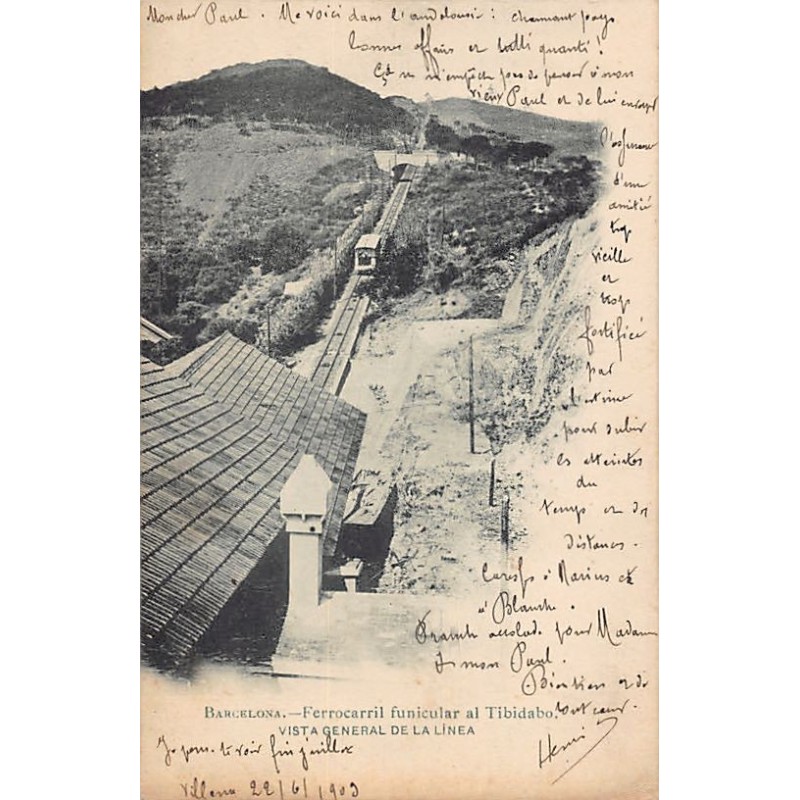 Mon cher Paul. Me voici dans l'andalousie : charmant pays
bonnes affaires et tutti quanti !
Ça ne m'empêche pas de penser à mon
vieux Paul et de lui envoyer
l'assurance
d'une
amitié
trop
vieille
et
trop
fortifiée
par
l'estime
pour subir
les atteintes
du
temps et de
distances.
à Marius et
à Blanche.
Franche accolade pour Madame
et mon Paul.
Bien tien et de
tout cœur.
Henri
BARCELONA.—Ferrocarril funicular al Tibidabo.
VISTA GENERAL DE LA LÍNEA
Je pense te voir fin juillet
Villena 22/6/1903